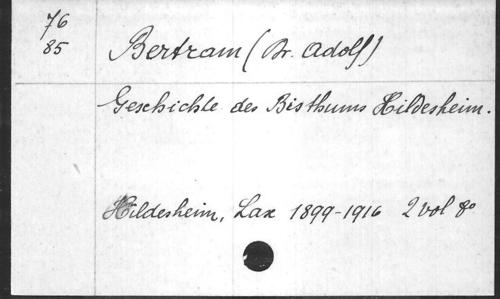 76
85
Bertram (Dr. Adolf)
Geschichte des Bisthums Hildesheim.
Hildesheim, Lax 1899-1916 2 vol 8o